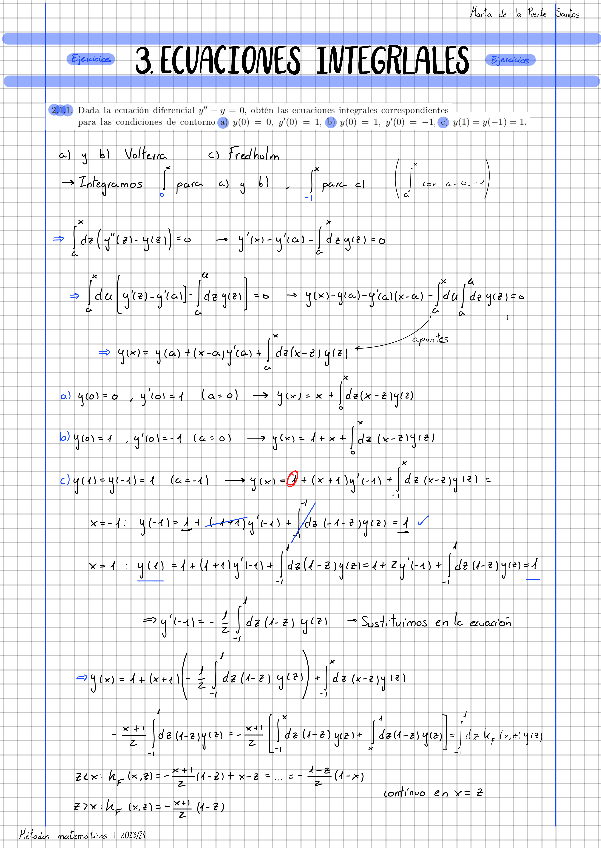 Marta de la Puente Santos
3. ECUACIONES INTEGRALES
Ejercicios
Ejercicios
Dada la ecuación diferencial y'' − y = 0, obtén las ecuaciones integrales correspondientes
para las condiciones de contorno a) y(0) = 0, y'(0) = 1, b) y(0) = 1, y'(0) = −1, c) y(1) = y(−1) = 1.
a) y b) Volterra c) Fredholm
→ Integramos ∫₀ˣ para a) y b) , ∫₋₁ˣ para c) ( ∫ₐˣ con a = 0, -1 )
⇒ ∫ₐˣ dz (y''(z) - y(z)) = 0 → y'(x) - y'(a) - ∫ₐˣ dz y(z) = 0
⇒ ∫ₐˣ du [y'(z) - y'(a)] - ∫ₐᵘ dz y(z)] = 0 → y(x) - y(a) - y'(a)(x-a) - ∫ₐˣ du ∫ₐᵘ dz y(z) = 0
apuntes
⇒ y(x) = y(a) + (x-a)y'(a) + ∫ₐˣ dz (x-z) y(z)
a) y(0) = 0 , y'(0) = 1 (a=0) → y(x) = x + ∫₀ˣ dz (x-z) y(z)
b) y(0) = 1 , y'(0) = -1 (a=0) → y(x) = 1 + x + ∫₀ˣ dz (x-z) y(z)
c) y(1) = y(-1) = 1 (a=-1) → y(x) = 1 + (x+1) y'(-1) + ∫₋₁ˣ dz (x-z) y(z) =
x = -1 : y(-1) = 1 + (-1+1) y'(-1) + ∫₋₁⁻¹ dz (-1-z) y(z) = 1 ✓
x = 1 : y(1) = 1 + (1+1) y'(-1) + ∫₋₁¹ dz (1-z) y(z) = 1 + 2y'(-1) + ∫₋₁¹ dz (1-z) y(z) = 1
⇒ y'(-1) = - 1/2 ∫₋₁¹ dz (1-z) y(z) → Sustituimos en la ecuación
⇒ y(x) = 1 + (x+1) ( - 1/2 ∫₋₁¹ dz (1-z) y(z) ) + ∫₋₁ˣ dz (x-z) y(z)
- (x+1)/2 ∫₋₁¹ dz (1-z) y(z) = - (x+1)/2 [ ∫₋₁ˣ dz (1-z) y(z) + ∫ₓ¹ dz (1-z) y(z) ] = ∫₋₁¹ dz k_F (x,z) y(z)
z<x : k_F (x,z) = - (x+1)/2 (1-z) + x-z = ... = - (1-z)/2 (1-x)
continuo en x = z
z>x : k_F (x,z) = - (x+1)/2 (1-z)
Métodos matemáticos I 2023/24